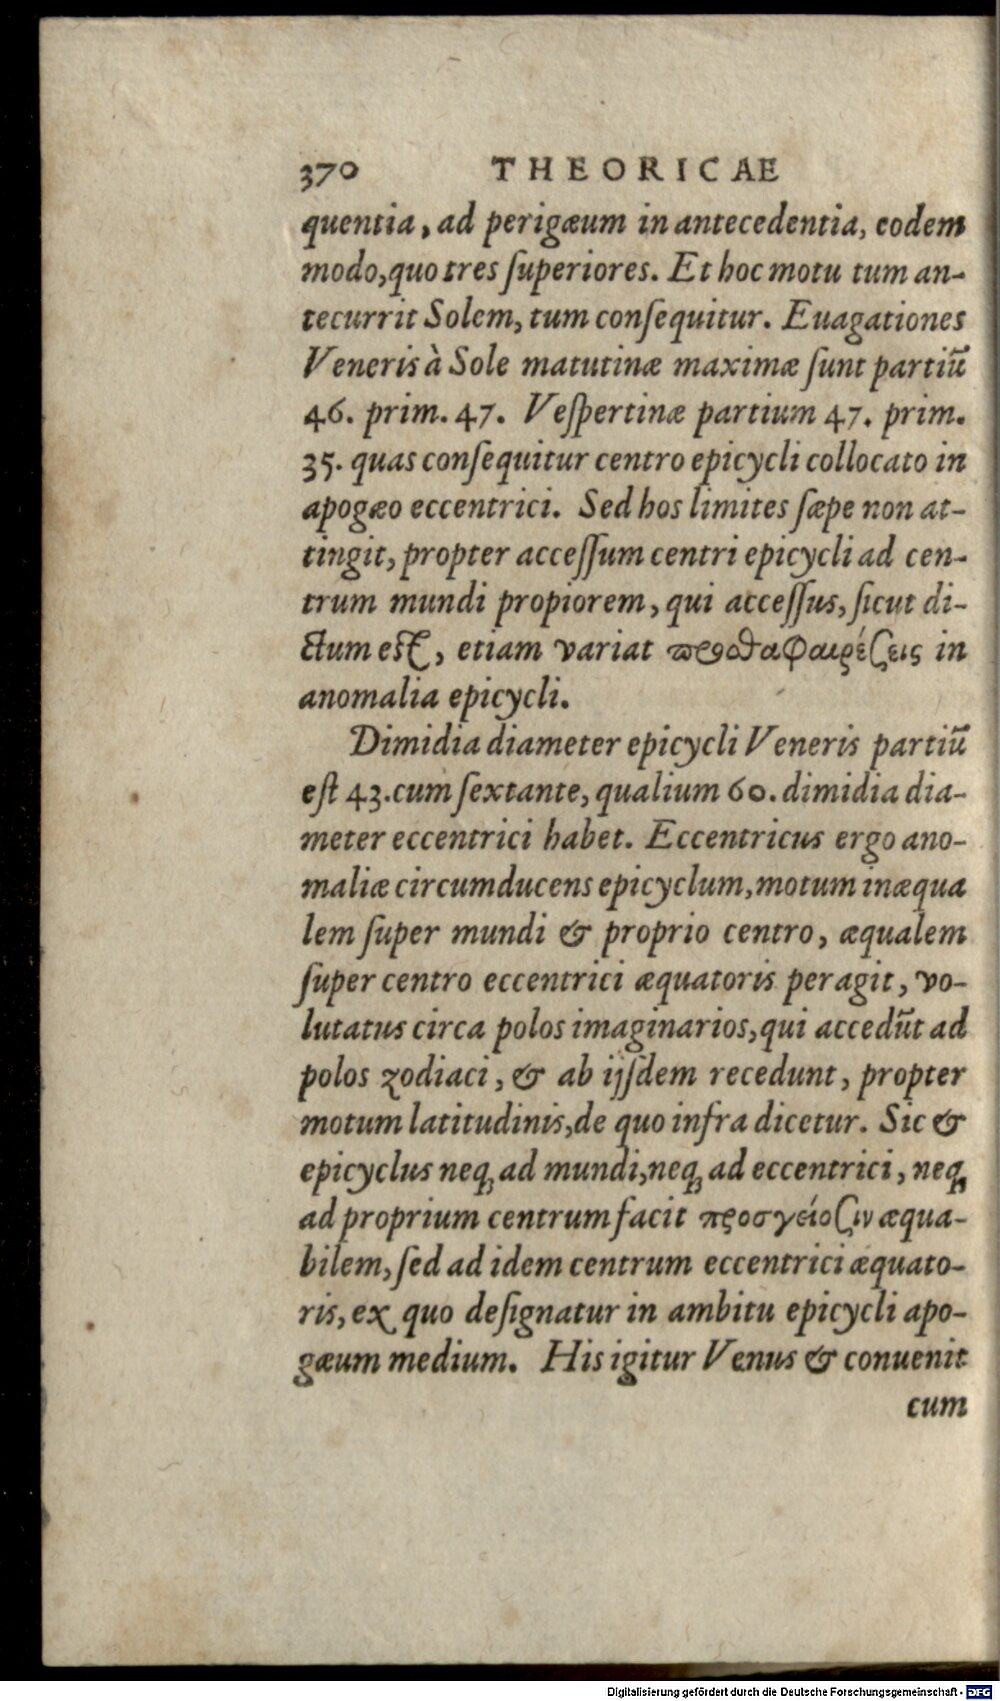 370 THEORICAE
quentia, ad perigæum in antecedentia, eodem
modo, quo tres ſuperiores. Et hoc motu tum an-
tecurrit Solem, tum conſequitur. Euagationes
Veneris à Sole matutinæ maximæ ſunt partiũ
46. prim. 47. Veſpertinæ partium 47. prim.
35. quas conſequitur centro epicycli collocato in
apogæo eccentrici. Sed hos limites ſæpe non at-
tingit, propter acceſſum centri epicycli ad cen-
trum mundi propiorem, qui acceſſus, ſicut di-
ctum eſt, etiam variat προσθαφαιρέσεις in
anomalia epicycli.
Dimidia diameter epicycli Veneris partiũ
eſt 43. cum ſextante, qualium 60. dimidia dia-
meter eccentrici habet. Eccentricus ergo ano-
maliæ circumducens epicyclum, motum inæqua
lem ſuper mundi & proprio centro, æqualem
ſuper centro eccentrici æquatoris peragit, vo-
lutatus circa polos imaginarios, qui accedũt ad
polos zodiaci, & ab ijſdem recedunt, propter
motum latitudinis, de quo infra dicetur. Sic &
epicyclus neq; ad mundi, neq; ad eccentrici, neq;
ad proprium centrum facit πρόσγείοσιν æqua-
bilem, ſed ad idem centrum eccentrici æquato-
ris, ex quo deſignatur in ambitu epicycli apo-
gæum medium. His igitur Venus & conuenit
cum
Digitalisierung gefördert durch die Deutsche Forschungsgemeinschaft - DFG